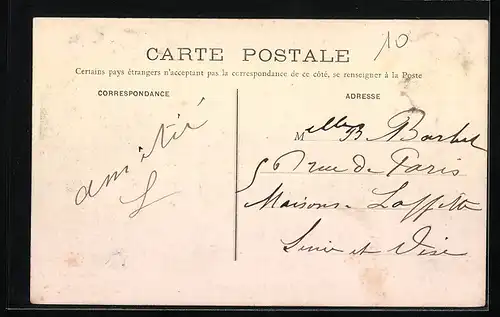 10
CARTE POSTALE
Certains pays étrangers n'acceptant pas la correspondance de ce côté, se renseigner à la Poste
CORRESPONDANCE
ADRESSE
amitié
Melle B Barbet
56 rue de Paris
Maisons-Laffitte
Seine et Oise